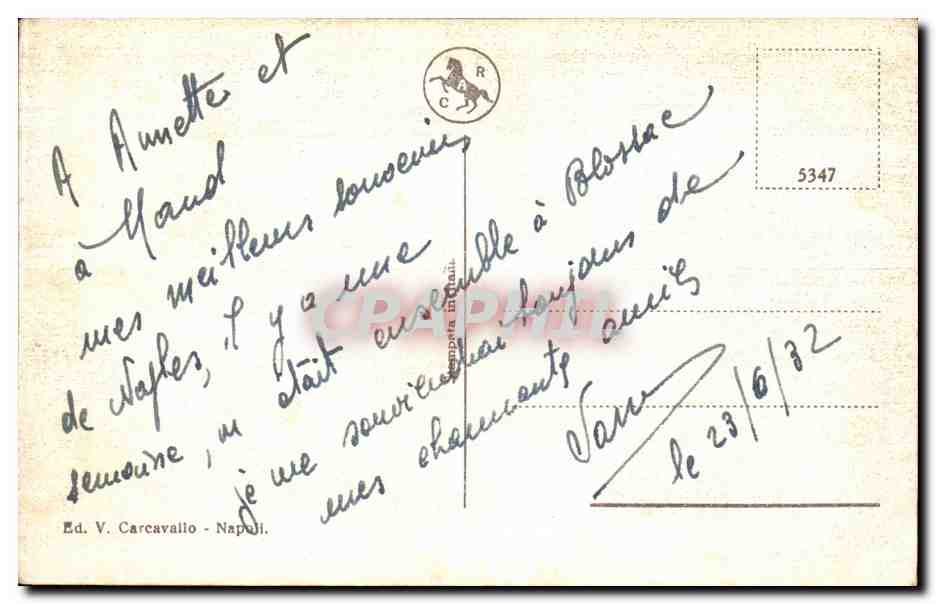 A Annette et
à Maud
mes meilleurs souvenirs
de Naples, il y a une
semaine, on était ensemble à Blossac
je me souviendrai toujours de
mes charmants amis
le 23/6/32
C R
5347
Stampata in Italia
CPARHD
Ed. V. Carcavallo - Napoli.